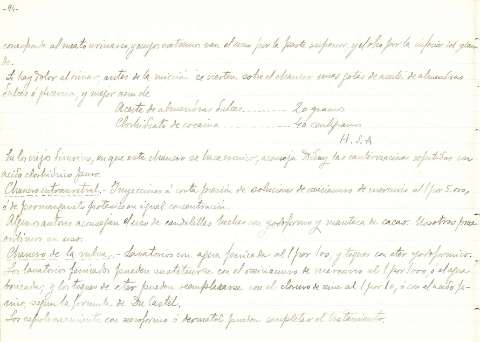 -94-
corresponda al meato urinario, y cuyos extremos van el uno por la parte superior, y el otro por la inferior del glan-
de.
Si hay dolor al orinar, antes de la micción se vierten sobre el chancro unas gotas de aceite de almendras
dulces ó glicerina, y mejor aun de
Aceite de almendras dulces ............ 20 gramos
Clorhidrato de cocaina ............ 40 centigramos
H. S. A
En los viejos, en que este chancro se hace crónico, aconseja las cauterizaciones repetidas con
acido clorhidrico puro.
Chancro intrauretral.- Inyecciones á corta presión de soluciones de oxicianuro de mercurio al 1 por 5.000,
ó de permanganato potásico en igual concentración.
Algunos autores aconsejan el uso de candelillas hechas con yodoformo y manteca de cacao. Nosotros pros-
cribimos su uso.
Chancro de la vulva.- Lavatorios con agua fenicada al 1 por 100, y toques con eter yodoformico.
Los lavatorios fenicados pueden sustituirse con el oxicianuro de mercurio al 1 por 1000, ó el agua
bricada, y los toques de eter pueden reemplazarse con el cloruro de zinc al 1 por 10, ó con el acido
segun la formula de Du Castel.
Los espolvoreamientos con xeroformo ó dermatol pueden completar el tratamiento.